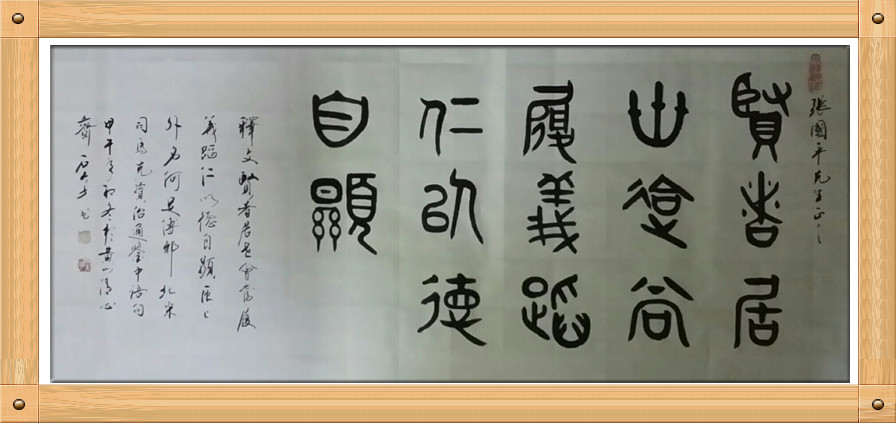 张國平先生正之
賢者居
世會當
履義蹈
仁以德
自顯
釋文賢者居世會當履
義蹈仁以德自顯區區
外名何足傳邪 北宋
司馬光資治通鑒中語句
甲午年初冬於黄山清心
齋